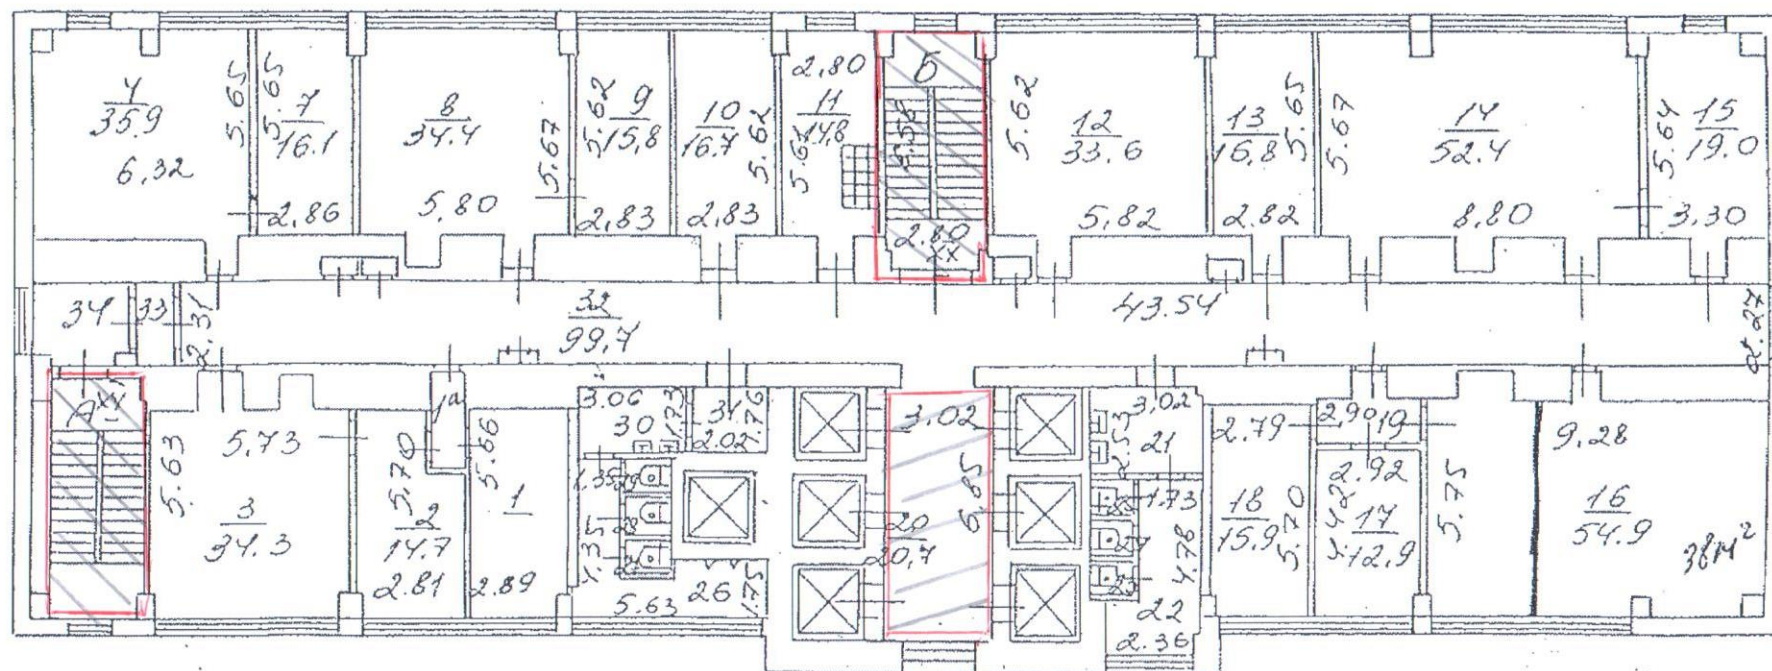 4
35.9
6,32
5.65
5.65
7
16.1
2,86
8
34.4
5,80
5.67
5.62
9
15,8
2,83
10
16.7
2,83
5.62
2,80
11
14,8
5.62
Б
5.56
2.80
XX
5.62
12
33.6
5,82
13
15,8
2.82
5.65
5.67
14
52.4
8.80
5.64
15
19.0
3,30
34
33
2.31
32
99,7
43.54
2.27
А
XX
5.63
5,73
3
34.3
5,70
2
14.7
2.81
1а
5.66
1
2.89
3.06
30
1.73
31
2.02
1.76
1.35
4.35
5.63
26
1.75
3,02
6,85
20
20,7
3,02
2.53
21
1,73
4.78
22
2.36
2,79
18
15,9
5.70
2,90
19
2.92
17
12,9
5.75
9,28
16
54.9
38м²